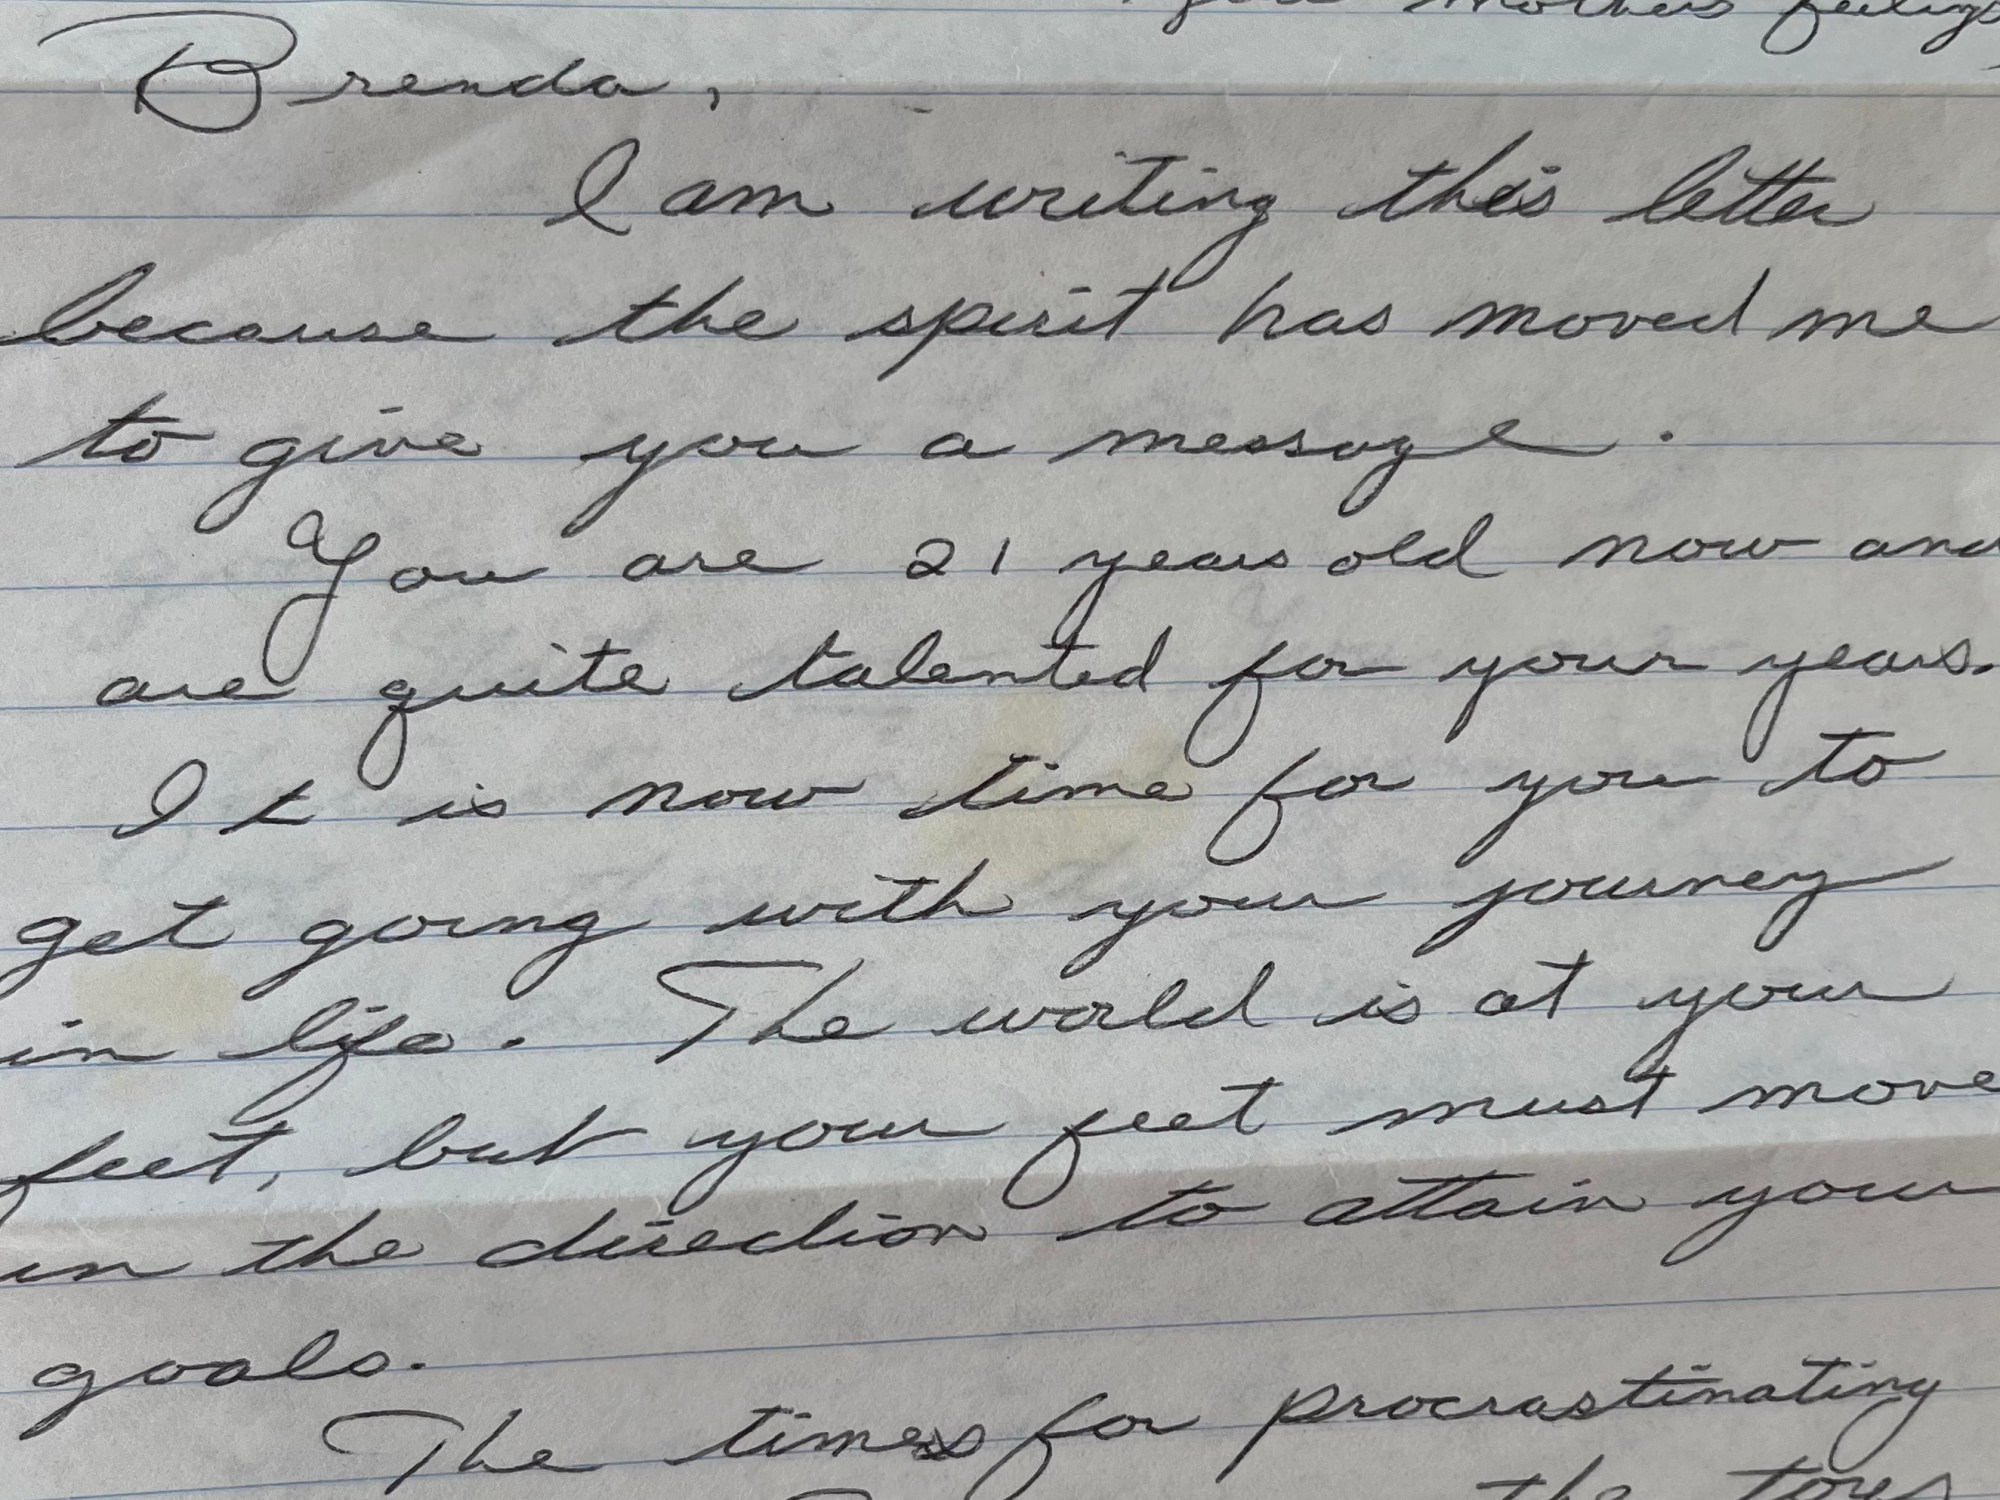 mothers feelings
Brenda,
I am writing this letter
because the spirit has moved me
to give you a message.
You are 21 years old now and
are quite talented for your years.
It is now time for you to
get going with your journey
in life. The world is at your
feet, but your feet must move
in the direction to attain your
goals.
The times for procrastinating
the